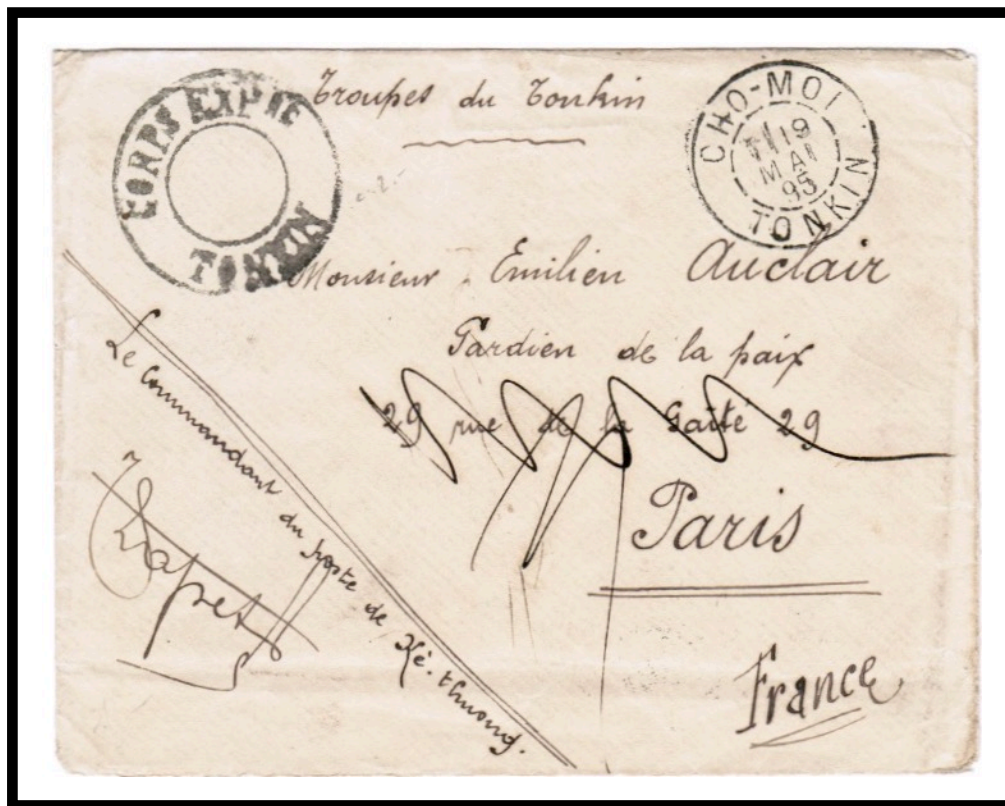 CORPS EXPRE
TONKIN
Troupes du Tonkin
CHO-MOI
19
MAI
95
TONKIN
Monsieur Emilien Auclair
Gardien de la paix
29 rue de la Gaîté 29
Paris
France
Le Commandant du poste de Kè. thuong.